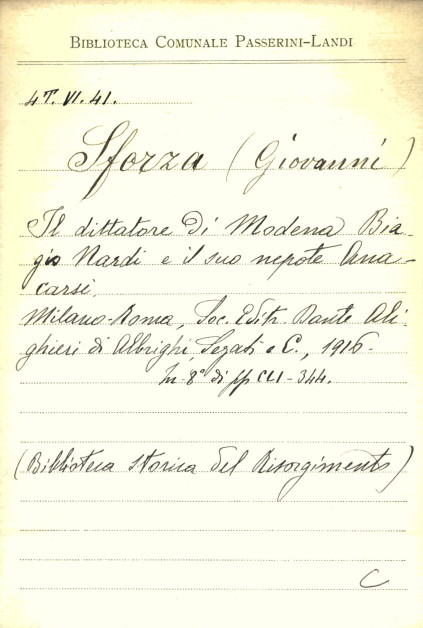 BIBLIOTECA COMUNALE PASSERINI-LANDI
4T. VI. 41.
Sforza (Giovanni)
Il dittatore di Modena Bia-
gio Nardi e il suo nepote Ana-
carsi.
Milano-Roma, Soc. Editr. Dante Ali-
ghieri di Albrighi, Segati e C., 1916.
In-8° di pp CLI-344.
(Biblioteca storica del Risorgimento)
C